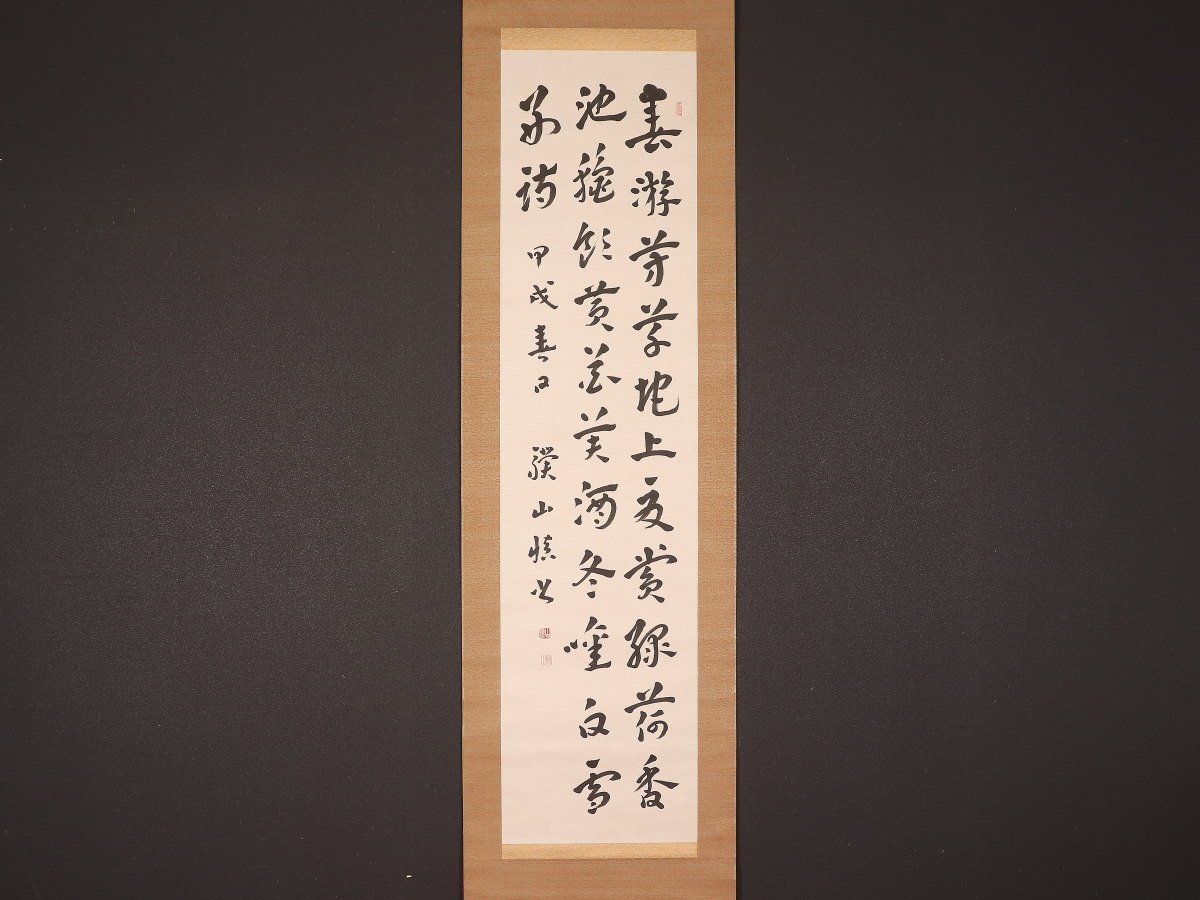 春游芳草地上夏賞緑荷香
池秋飲黄花美酒冬唫白雪
新詩 甲戌春日 山慎書